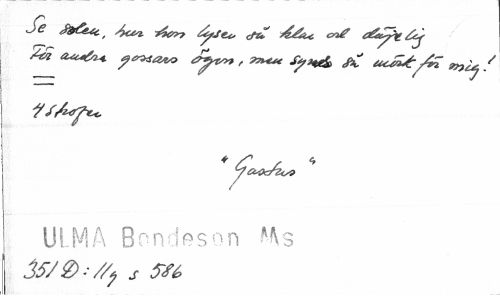 Se solen, hur hon lyser så klar och däjelig
För andra gossars ögon, men synes så mörk för mig!
4 strofer
"Gastus"
ULMA Bondeson Ms
351 D: 11g s 586